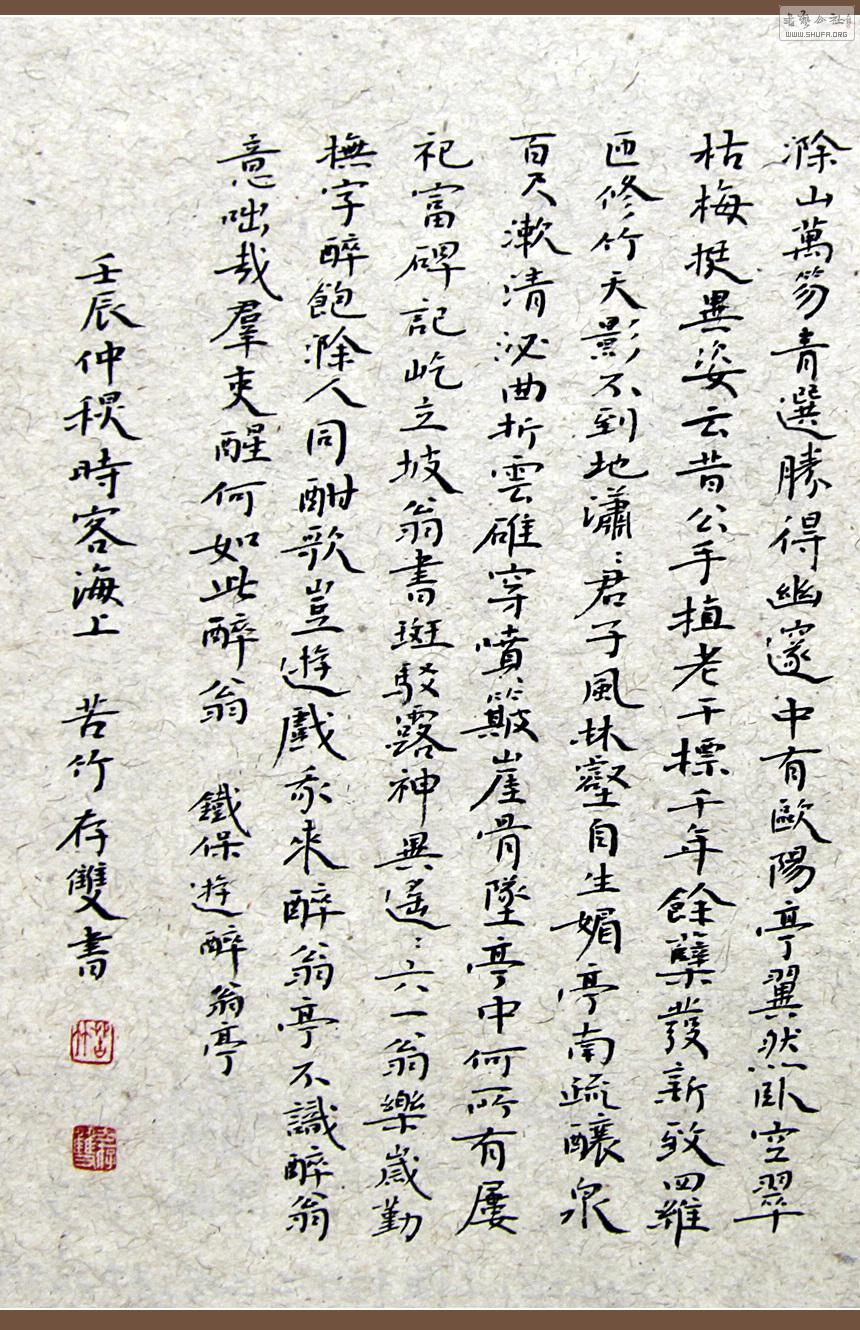 滁山萬笏青選勝得幽邃中有歐陽亭翼然臥空翠
枯梅挺異姿云昔公手植老干標千年餘蘖發新致四維
匝修竹天影不到地瀟〻君子風林壑自生媚亭南疏釀泉
百尺漱清泌曲折雲碓穿噴簸崖骨墜亭中何所有屢
祀富碑記屹立坡翁書斑駁露神異遙〻六一翁樂歲勤
撫字醉飽滁人同酣歌豈遊戲我來醉翁亭不識醉翁
意咄哉羣吏醒何如此醉翁 鐵保遊醉翁亭
壬辰仲秋時客海上 苦竹存雙書
苦竹
存雙
WWW.SHUFA.ORG